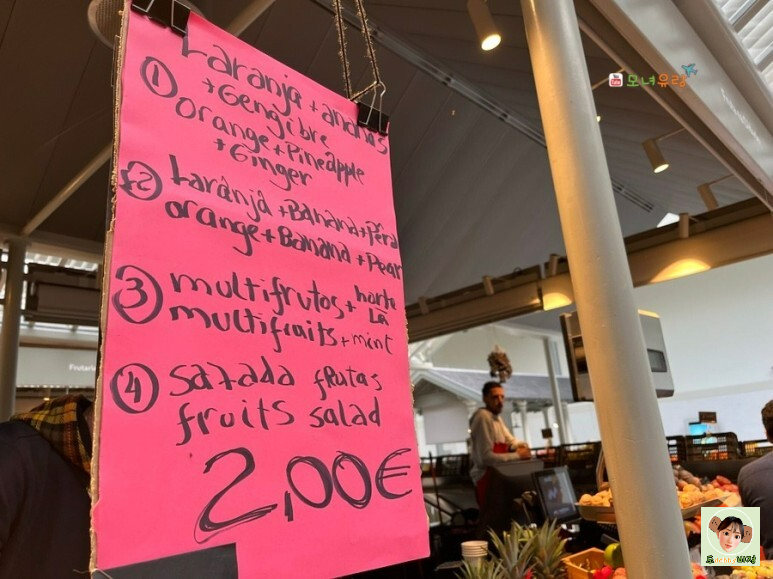 ① Laranja + ananas
+ Gengibre
orange + Pineapple
+ Ginger
② Laranja + Banana + Pêra
orange + Banana + Pear
③ multifrutos + horte
Lã
multifruits + mint
④ Salada frutas
fruits salad
2,00€
모녀유랑